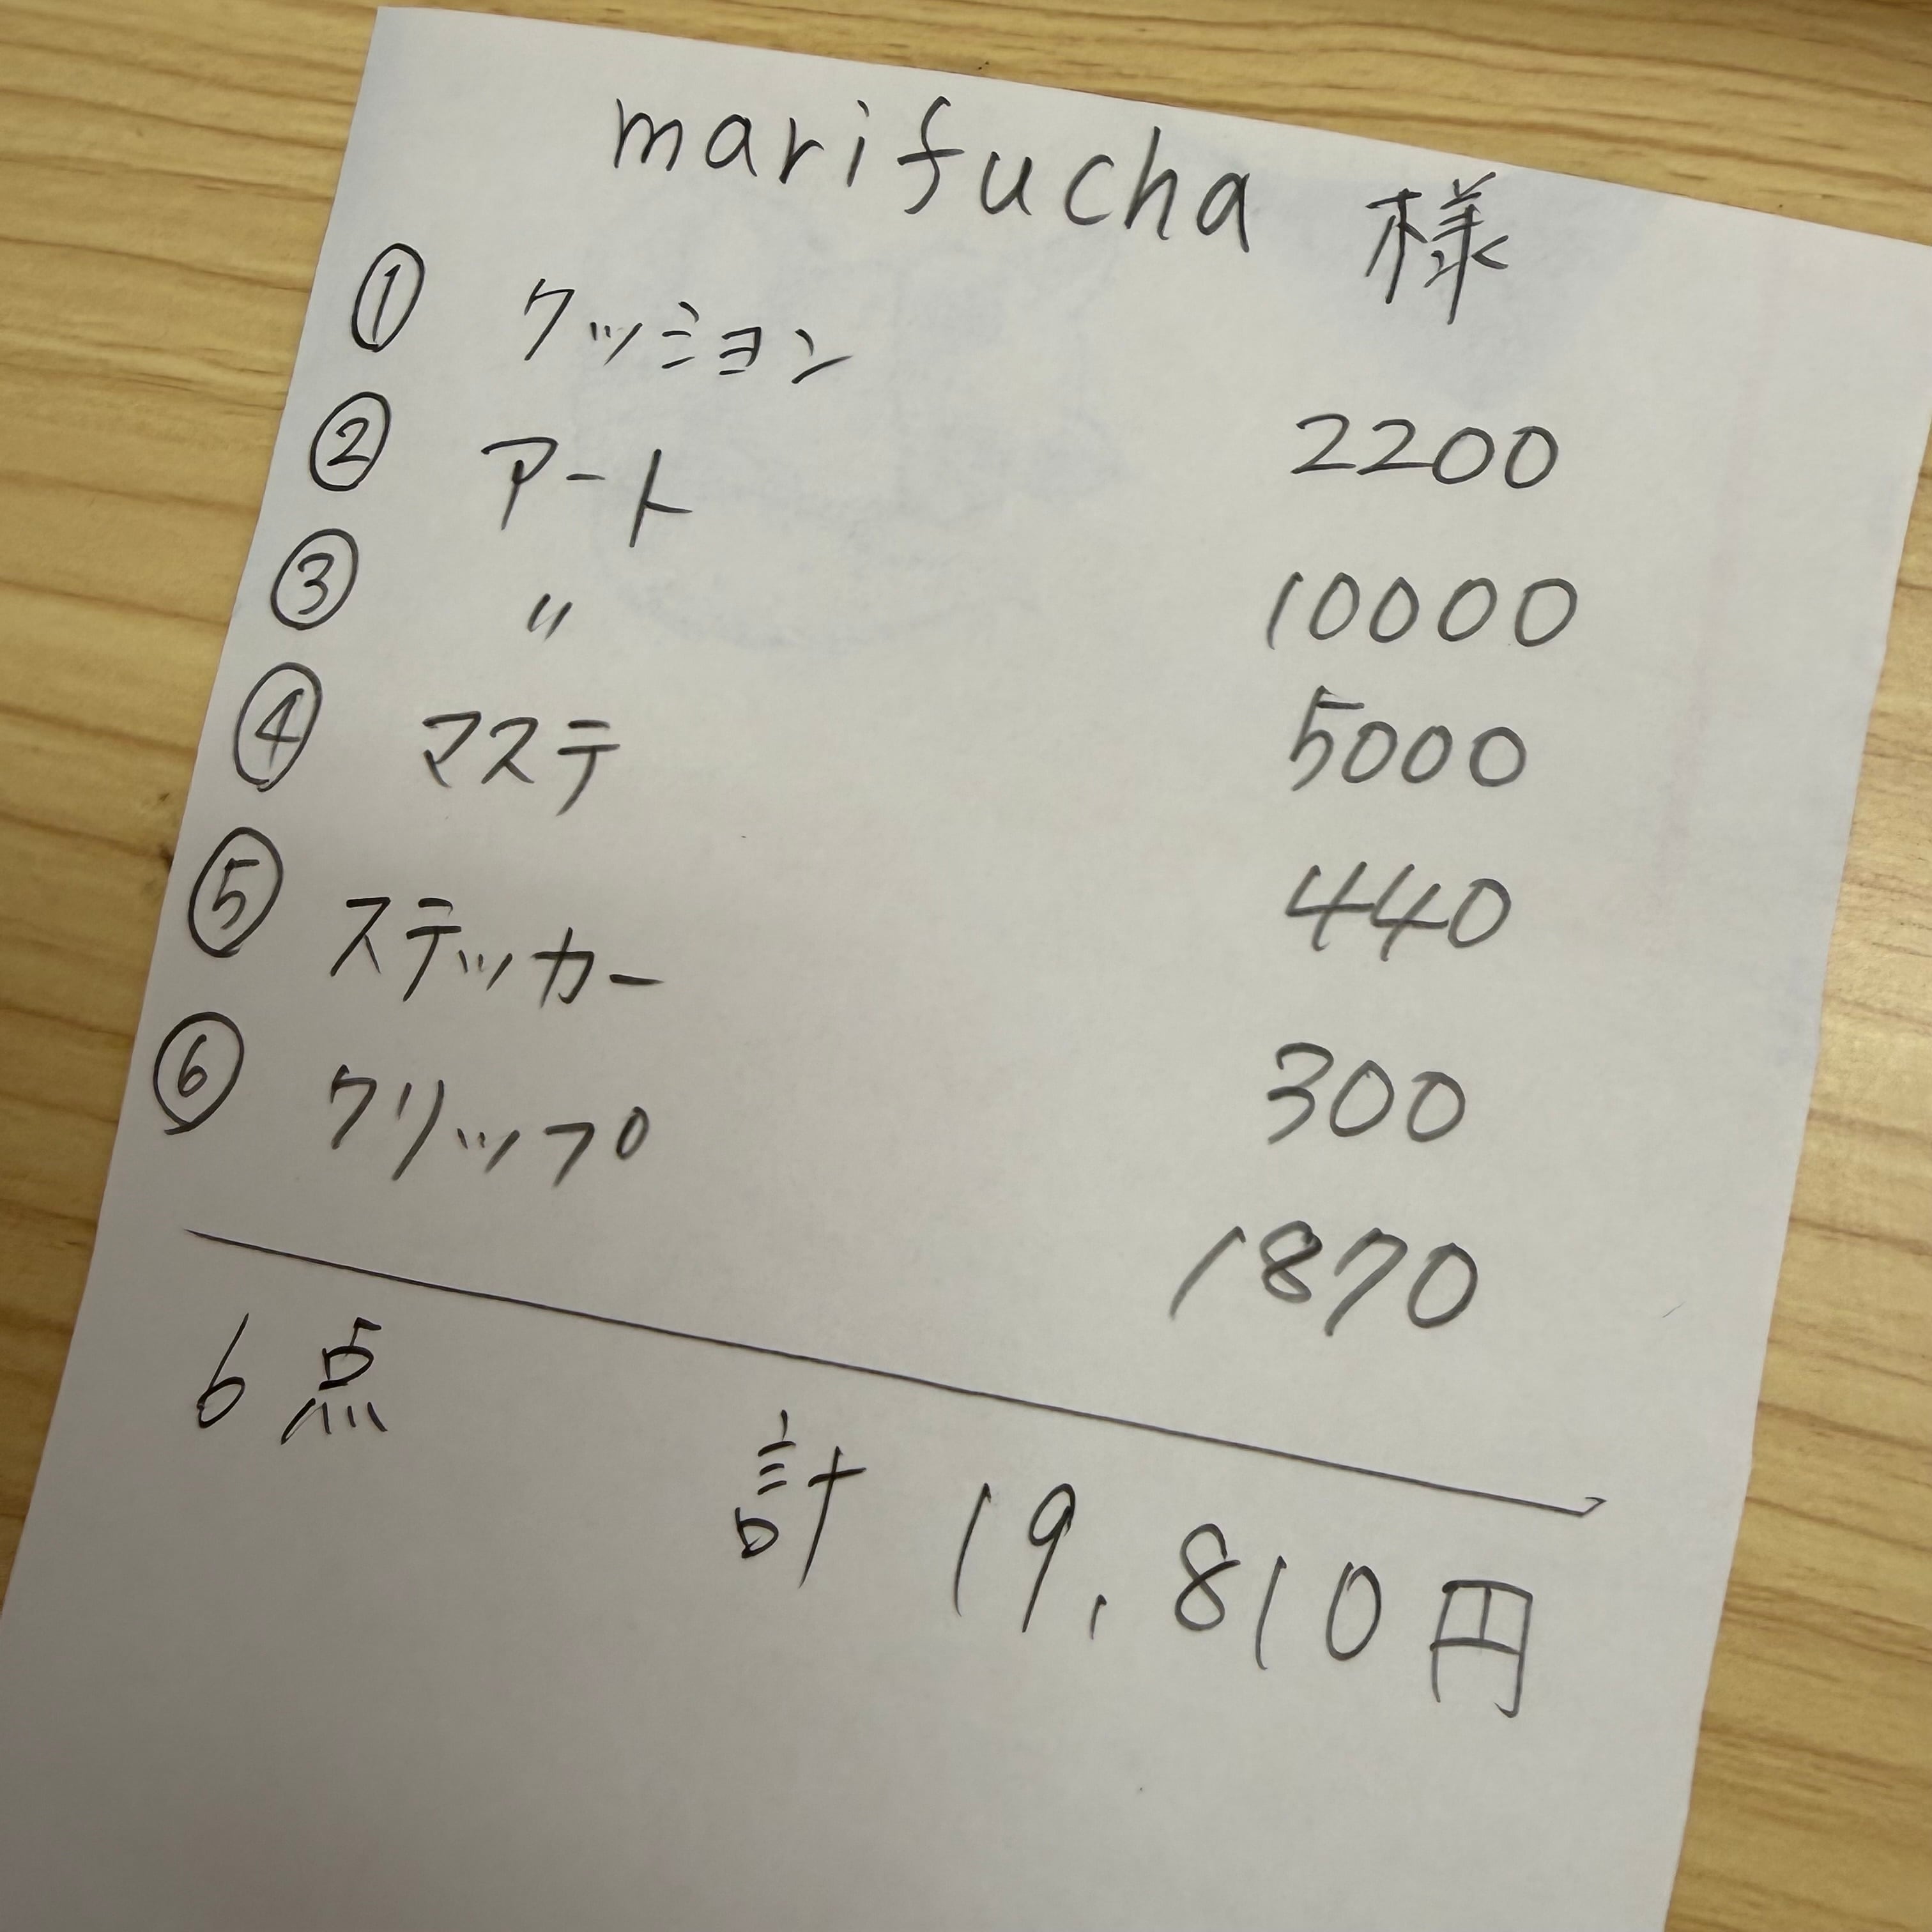 marifucha 様
① クッション 2200
② アート 10000
③ 〃 5000
④ マステ 440
⑤ ステッカー 300
⑥ クリップ 1870
6点 計 19,810円